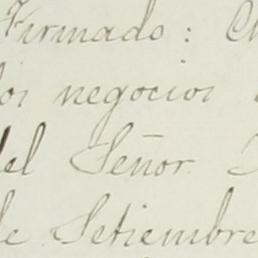 Firmado:
los negocios
del Señor
de Setiembre